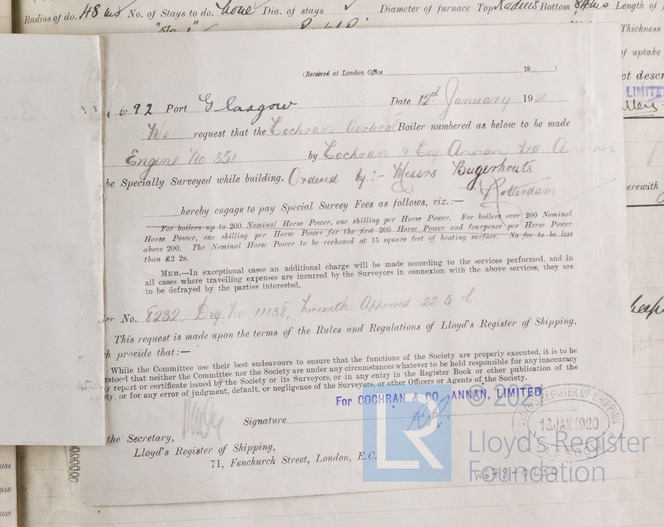 Radius of do. 48 ins No. of Stays to do. none Dia. of stays Diameter of furnace Top Radius Bottom Length of
Thickness
of uptake
(Received at London Office 19
ct descri
LIMITE
692 Port Glasgow Date 12th January 1920
We request that the Cochran Vertical Boiler numbered as below to be made
Engine No 351 by Cochran & Coy Annan Ltd Annan
be Specially Surveyed while building. Ordered by:- Messrs Burgerhouts
Rotterdam
erewith
hereby engage to pay Special Survey Fees as follows, viz.:—
For boilers up to 200 Nominal Horse Power, one shilling per Horse Power. For boilers over 200 Nominal
Horse Power, one shilling per Horse Power for the first 200 Horse Power and fourpence per Horse Power
above 200. The Nominal Horse Power to be reckoned at 15 square feet of heating surface. No fee to be less
than £2 2s.
MEM.—In exceptional cases an additional charge will be made according to the services performed, and in
all cases where travelling expenses are incurred by the Surveyors in connexion with the above services, they are
to be defrayed by the parties interested.
er No. 8232 Drg No 11138, herewith Approved 22.5.16
This request is made upon the terms of the Rules and Regulations of Lloyd's Register of Shipping,
h provide that:—
While the Committee use their best endeavours to ensure that the functions of the Society are properly executed, it is to be
rstood that neither the Committee nor the Society are under any circumstances whatever to be held responsible for any inaccuracy
y report or certificate issued by the Society or its Surveyors, or in any entry in the Register Book or other publication of the
ty, or for any error of judgment, default, or negligence of the Surveyors, or other Officers or Agents of the Society.
For COCHRAN & CO. ANNAN, LIMITED
Signature
the Secretary,
Lloyd's Register of Shipping,
71, Fenchurch Street, London, E.C.
REGISTER OF SHIPPING
13 JAN 1920
LR
© 202
Lloyd's Register
Foundation